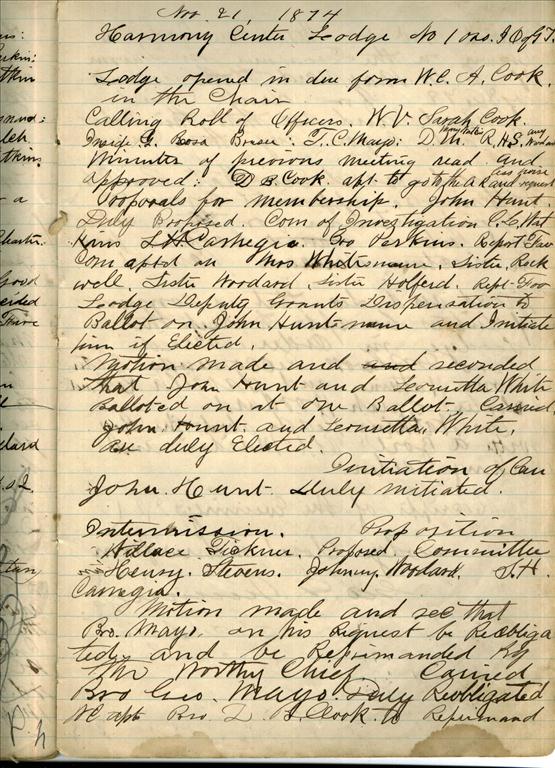 Nov. 21, 1874
Harmony Center Lodge No 1 I O of G T.
Lodge opened in due form W.C. A. Cook.
in the Chair
Calling Roll of Officers. W.V. Sarah Cook.
Inside G. T.C. Mayo: D.M. R.H.S.
Minutes of previous meeting read and
approved: D B Cook apt. to go to the
Proposals for membership. John Hunt.
Duly Proposed. Com of Investigation C.C. Wat
kins L H Carnegia. Geo Perkins. Report Fav
Com aptd on Mrs White's name, Sister Rock
well, Sister Woodard, Sister Holferd. Rept. Fav
Lodge Deputy Grants Dispensation to
Ballot on John Hunts name and Initiate
him if Elected.
Motion made and and seconded
that John Hunt and Leonetta White
Balloted on at one Ballot, Carried,
John Hunt and Leonetta White,
are duly Elected.
Initiation of Can
John Hunt Duly initiated.
Intermission. Proposition
Wallace Proposed. Committee
Henry Stevens. Johnny Woodard. S.H.
Carnegia.
Motion made and sec that
Bro. Mayo, on his request be Reobliga
ted, and be Reprimanded by
the Worthy Chief Carried
Bro Geo. Mayo Duly Reobligated
WC apt Bro D B Cook to Reprimand